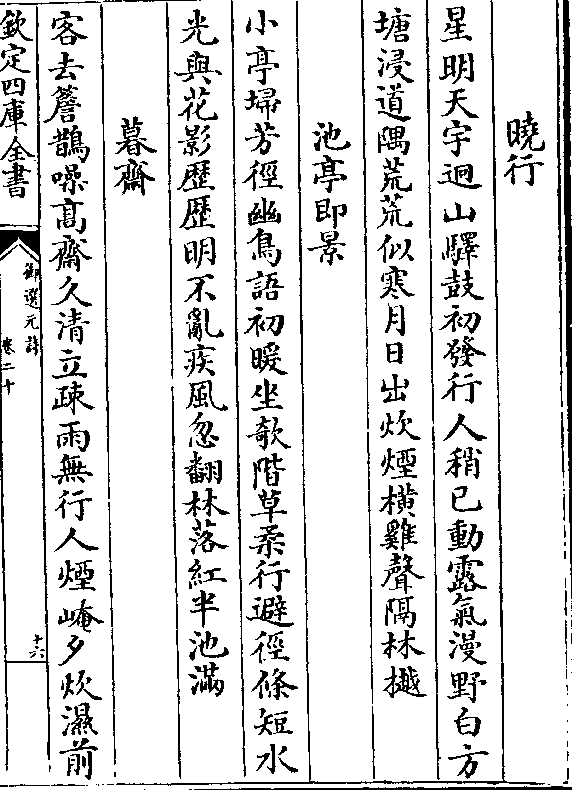 曉行
星明天宇迥山驛鼓初發行人稍已動露氣漫野白方
塘浸道隅荒荒似寒月日出炊煙橫雞聲隔林樾
池亭即景
小亭埽芳徑幽鳥語初暖坐欹階草柔行避徑條短水
光與花影歴歴明不亂疾風忽翻林落紅半池滿
暮齋
客去簷鵲噪高齋久清立疎雨無行人煙崦夕炊濕前
欽定四庫全書
御選元詩
卷二十
十六